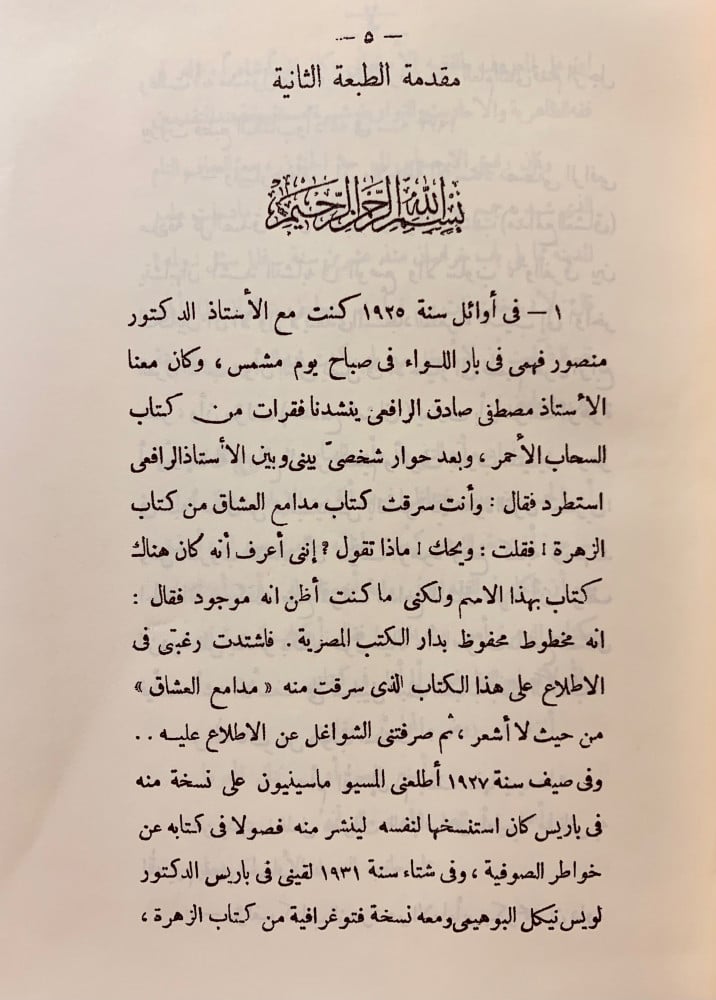 — ٥ —
مقدمة الطبعة الثانية
بسم الله الرحمن الرحيم
١ — فى أوائل سنة ١٩٢٥ كنت مع الأستاذ الدكتور
منصور فهمى فى بار اللـواء فى صباح يوم مشمس ، وكان معنا
الأستاذ مصطفى صادق الرافعى ينشدنا فقرات من كتاب
السحاب الأحمر ، وبعد حوار شخصىّ بينى وبين الأستاذ الرافعى
استطرد فقال : وأنت سرقت كتاب مدامع العشاق من كتاب
الزهرة ! فقلت : ويحك ! ماذا تقول ؟ إننى أعرف أنه كان هناك
كتاب بهذا الاسم ولكنى ما كنت أظن انه موجود فقال :
انه مخطوط محفوظ بدار الكتب المصرية . فاشتدت رغبتى فى
الاطلاع على هذا الكتاب الذى سرقت منه « مدامع العشاق »
من حيث لا أشعر ، ثم صرفتنى الشواغل عن الاطلاع عليـه . .
وفى صيف سنة ١٩٢٧ أطلعنى المسيو ماسينيون على نسخة منه
فى باريس كان استنسخها لنفسه لينشر منه فصولا فى كتابه عن
خواطر الصوفية ، وفى شتاء سنة ١٩٣١ لقينى فى باريس الدكتور
لويس نيكل البوهيمى ومعه نسخة فتوغرافية من كتاب الزهرة ،